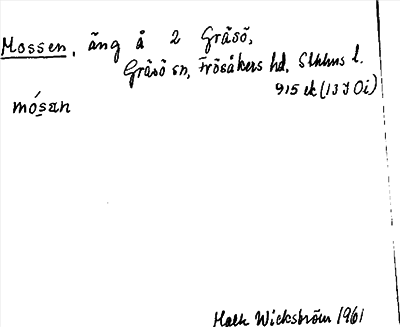 Mossen, äng å 2 Gräsö,
Gräsö sn, Frösåkers hd, Sthlms l.
915 ek (13 I 0i)
mósan
Wickström 1961